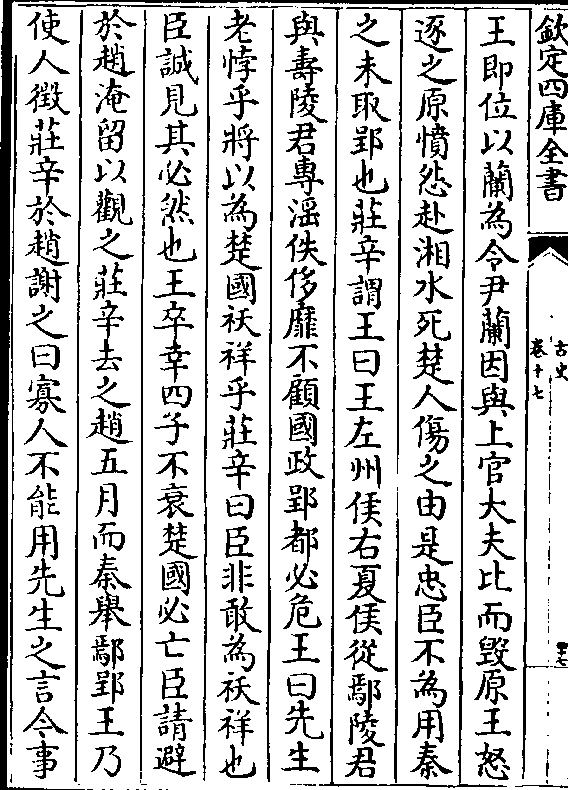 欽定四庫全書
古史
卷十七
王即位以蘭為令尹蘭因與上官大夫比而毀原王怒
逐之原憤怨赴湘水死楚人傷之由是忠臣不為用秦
之未取郢也莊辛謂王曰王左州侯右夏侯從鄢陵君
與壽陵君專滛佚侈靡不顧國政郢都必危王曰先生
老悖乎將以為楚國祅祥乎莊辛曰臣非敢為祅祥也
臣誠見其必然也王卒幸四子不衰楚國必亡臣請避
於趙淹留以觀之莊辛去之趙五月而秦舉鄢郢王乃
使人徵莊辛於趙謝之曰寡人不能用先生之言今事